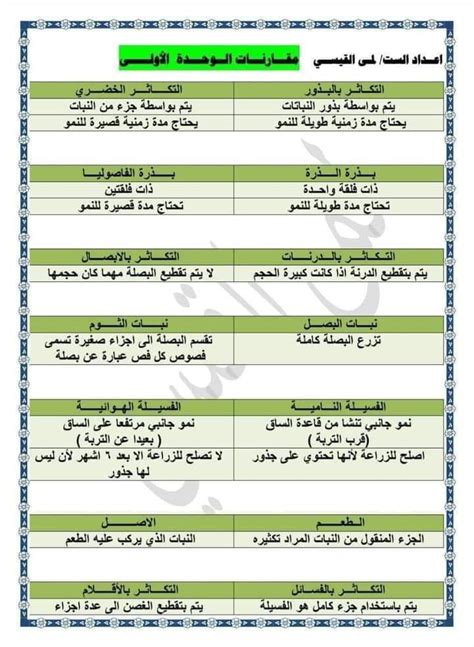 اعداد الست/ لمى القيسي مقارنات الوحدة الأولى
التكاثر بالبذور التكاثر الخضري
يتم بواسطة بذور النباتات يتم بواسطة جزء من النبات
يحتاج مدة زمنية طويلة للنمو يحتاج مدة زمنية قصيرة للنمو
بذرة الذرة بذرة الفاصوليا
ذات فلقة واحدة ذات فلقتين
تحتاج مدة طويلة للنمو تحتاج مدة قصيرة للنمو
التكاثر بالدرنات التكاثر بالابصال
يتم بتقطيع الدرنة اذا كانت كبيرة الحجم لا يتم تقطيع البصلة مهما كان حجمها
نبات البصل نبات الثوم
تزرع البصلة كاملة تقسم البصلة الى اجزاء صغيرة تسمى
فصوص كل فص عبارة عن بصلة
الفسيلة النامية الفسيلة الهوائية
نمو جانبي تنشا من قاعدة الساق نمو جانبي مرتفعا على الساق
(قرب التربة ) ( بعيدا عن التربة )
اصلح للزراعة لأنها تحتوي على جذور لا تصلح للزراعة الا بعد ٦ اشهر لأن ليس
لها جذور
الطعم الاصل
الجزء المنقول من النبات المراد تكثيره النبات الذي يركب عليه الطعم
التكاثر بالفسائل التكاثر بالأقلام
يتم باستخدام جزء كامل هو الفسيلة يتم بتقطيع الغصن الى عدة اجزاء
لمى القيسي